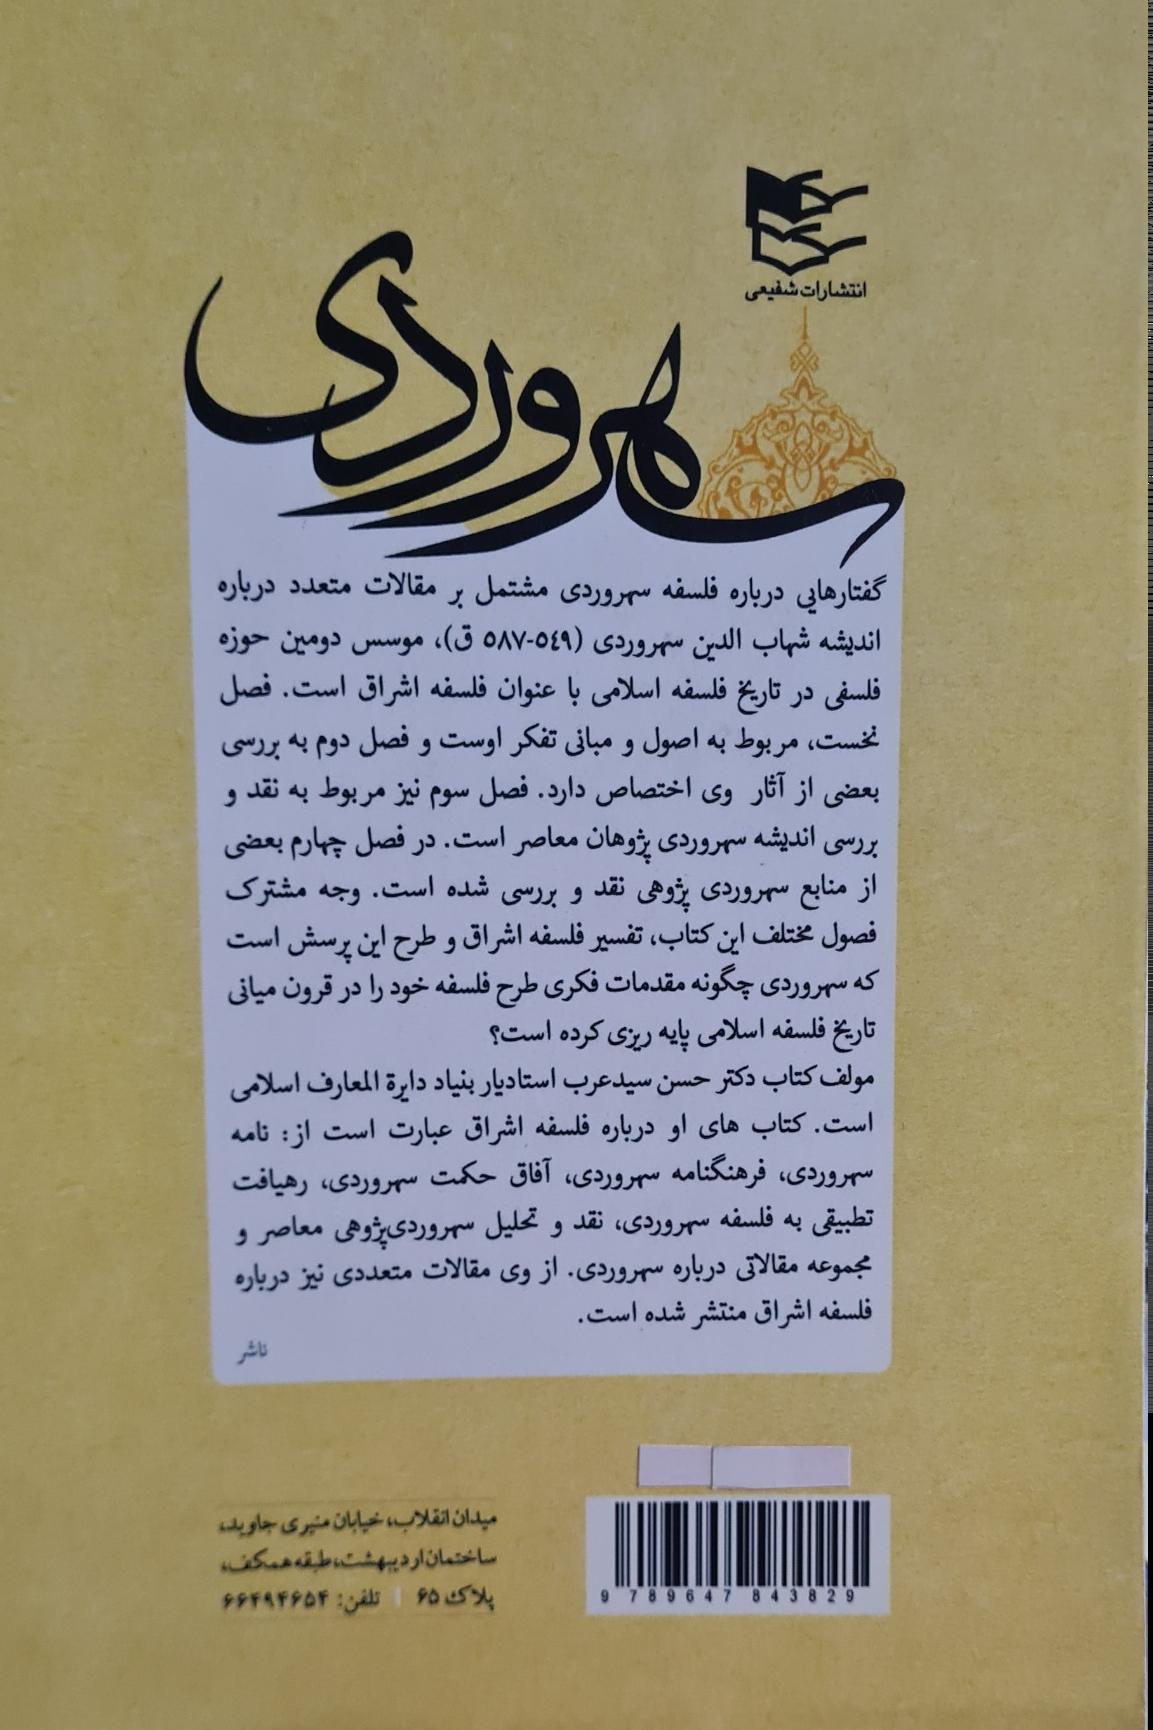 انتشارات شفیعی
سهروردی
گفتارهایی درباره فلسفه سهروردی مشتمل بر مقالات متعدد درباره
اندیشه شهاب الدین سهروردی (٥٤٩-٥٨٧ ق)، موسس دومین حوزه
فلسفی در تاریخ فلسفه اسلامی با عنوان فلسفه اشراق است. فصل
نخست، مربوط به اصول و مبانی تفکر اوست و فصل دوم به بررسی
بعضی از آثار وی اختصاص دارد. فصل سوم نیز مربوط به نقد و
بررسی اندیشه سهروردی پژوهان معاصر است. در فصل چهارم بعضی
از منابع سهروردی پژوهی نقد و بررسی شده است. وجه مشترک
فصول مختلف این کتاب، تفسیر فلسفه اشراق و طرح این پرسش است
که سهروردی چگونه مقدمات فکری طرح فلسفه خود را در قرون میانی
تاریخ فلسفه اسلامی پایه ریزی کرده است؟
مولف کتاب دکتر حسن سیدعرب استادیار بنیاد دایرة المعارف اسلامی
است. کتاب های او درباره فلسفه اشراق عبارت است از: نامه
سهروردی، فرهنگنامه سهروردی، آفاق حکمت سهروردی، رهیافت
تطبیقی به فلسفه سهروردی، نقد و تحلیل سهروردی‌پژوهی معاصر و
مجموعه مقالاتی درباره سهروردی. از وی مقالات متعددی نیز درباره
فلسفه اشراق منتشر شده است.
ناشر
میدان انقلاب، خیابان منیری جاوید،
ساختمان اردیبهشت، طبقه همکف،
پلاک ۶۵ | تلفن: ۶۶۴۹۴۶۵۴
9 789647 843829